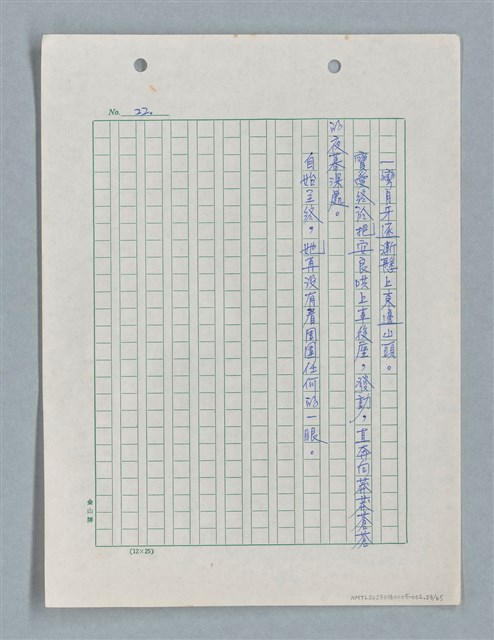 No. 22.
一彎月牙逐漸懸上東邊山頭。
寶愛終於把安良哄上車後座，發動，直奔向莽莽蒼蒼
的夜幕深處。
自始至終，她再沒有看周圍任何的一眼。
金山牌
(12×25)